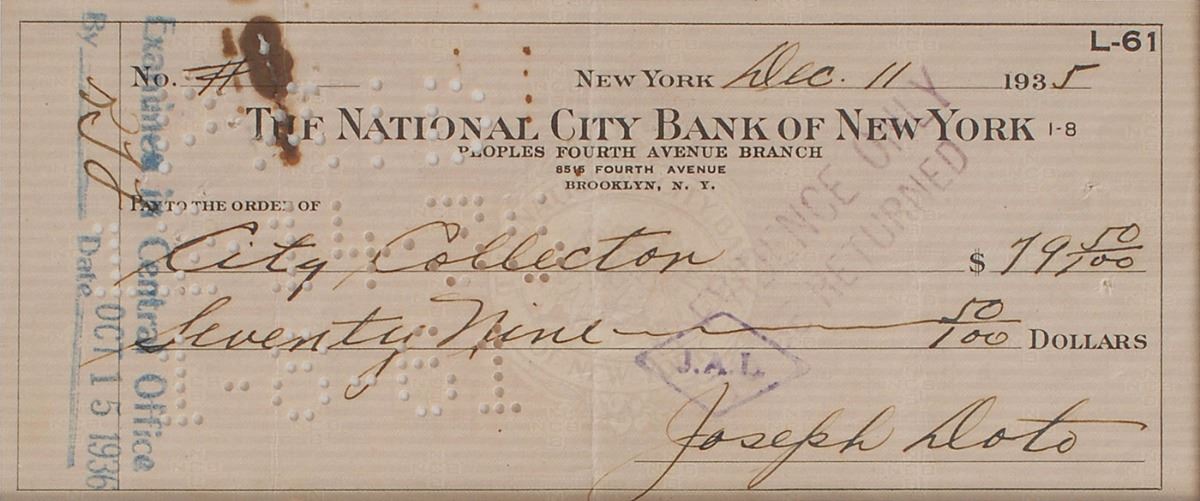 L-61
No. #
NEW YORK Dec. 11 1935
THE NATIONAL CITY BANK OF NEW YORK 1-8
PEOPLES FOURTH AVENUE BRANCH
8515 FOURTH AVENUE
BROOKLYN, N. Y.
PAY TO THE ORDER OF
City Collector $ 79 50/100
Seventy Nine 50/100 DOLLARS
J.A.L.
Joseph Doto
ONLY
RETURNED
Examined in Central Office
By Date OCT 15 1936